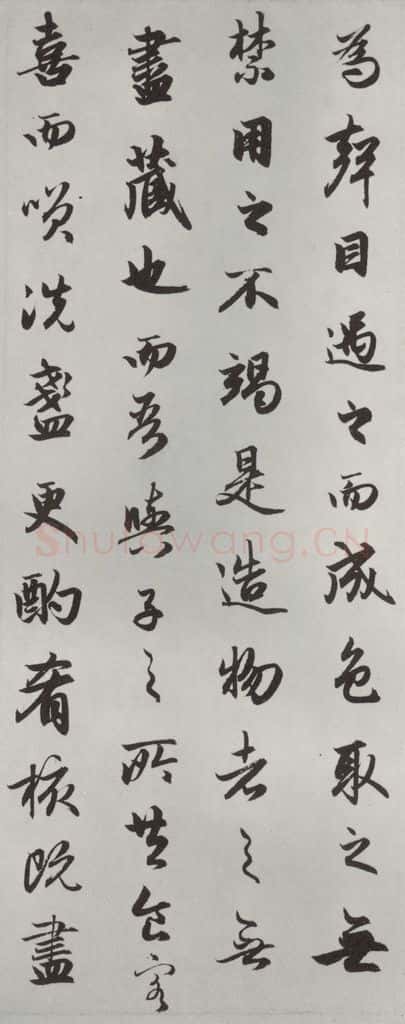 為聲目遇之而成色取之無
禁用之不竭是造物者之無
盡藏也而吾與子之所共食客
喜而咲洗盞更酌肴核既盡
Shufawang.CN